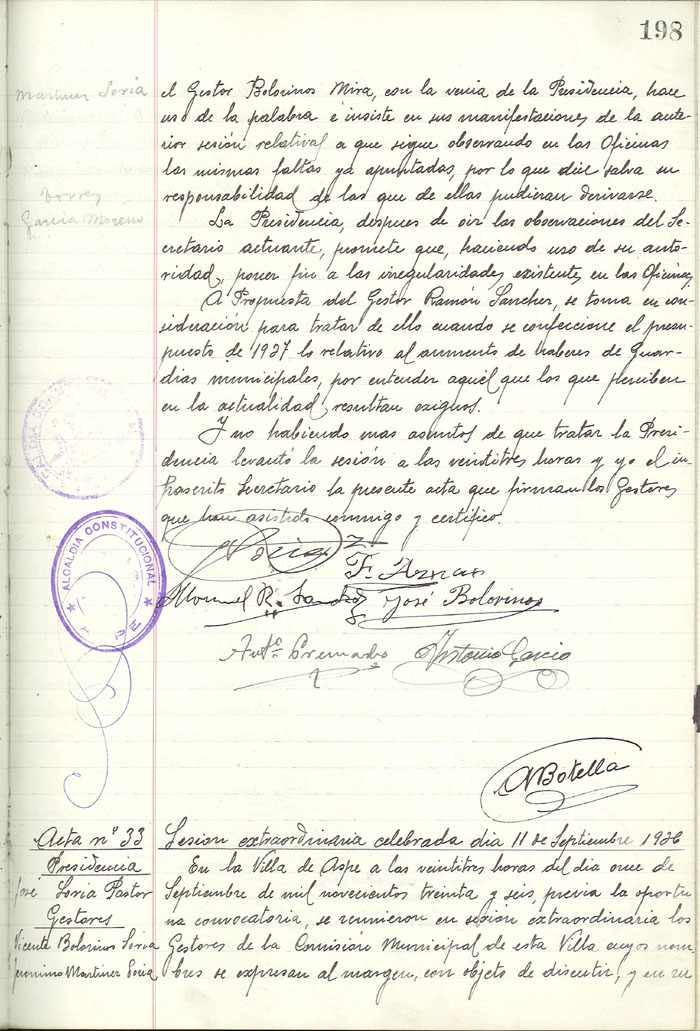 198
Martinez Soria
Torres
Garcia Moreno
el Gestor Bolorinos Mira, con la venia de la Presidencia, hace
uso de la palabra é insiste en sus manifestaciones de la ante-
rior sesión relativas a que sigue observando en las Oficinas
las mismas faltas ya apuntadas, por lo que dice salva su
responsabilidad de las que de ellas pudieran derivarse.
La Presidencia, despues de oir las observaciones del Se-
cretario actuante, promete que, haciendo uso de su auto-
ridad, poner fin a las irregularidades existentes en las Oficinas
A Propuesta del Gestor Ramón Sanchez, se toma en con-
sideración para tratar de ello cuando se confeccione el presu-
puesto de 1937 lo relativo al aumento de haberes de Guar-
dias municipales, por entender aquél que los que perciben
en la actualidad resultan exiguos.
Y no habiendo mas asuntos de que tratar la Presi-
dencia levantó la sesión a las veintitres horas y yo el in-
frascrito Secretario la presente acta que firman los Gestores
que han asistido conmigo y certifico.
ALCALDIA CONSTITUCIONAL
J. Soria
F. Aznar
Manuel R. Sanchez
José Bolorinos
Antº Cremades
Antonio Garcia
ALCALDIA CONSTITUCIONAL
A Botella
Acta nº 33
Sesion extraordinaria celebrada dia 11 de Septiembre 1936
Presidencia
José Soria Pastor
Gestores
Vicente Bolorinos Soria
Jeronimo Martinez Soria
En la Villa de Aspe a las veintitres horas del dia once de
Septiembre de mil novecientos treinta y seis, previa la oportu
na convocatoria, se reunieron en sesion extraordinaria los
Gestores de la Comisión Municipal de esta Villa cuyos nom-
bres se expresan al margen, con objeto de discutir, y en su